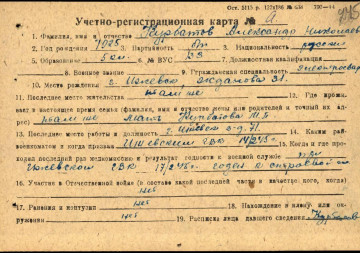 Учетно-регистрационная карта № А.
1. Фамилия, имя и отчество Курбатов Александр Николаев
2. Год рождения 1925 3. Партийность б/п 4. Национальность русский
5. Образование 5 кл. 6. № ВУС 7. Должностная квалификация
8. Воинское звание 9. Гражданская специальность электросвар
10. Место рождения г. Ижевск
11. Последнее место жительства там же 12. Где прожи-
вает в настоящее время семья (фамилия, имя и отчество жены или родителей и точный их ад-
рес) там же мать Курбатова
13. Последнее место работы и должность г. Ижевск 14. Каким рай-
военкоматом и когда призван Ижевским ГВК 15. Когда и где про-
ходил последний раз медкомиссию и результат годности к военной службе при
Ижевском ГВК годен к строевой
16. Участие в Отечественной войне (в составе какой последней части и качестве кого, когда)
нет
17. Ранения и контузии нет 18. Нахождение в плену или ок-
ружении нет 19. Расписка лица давшего сведения Курбатов